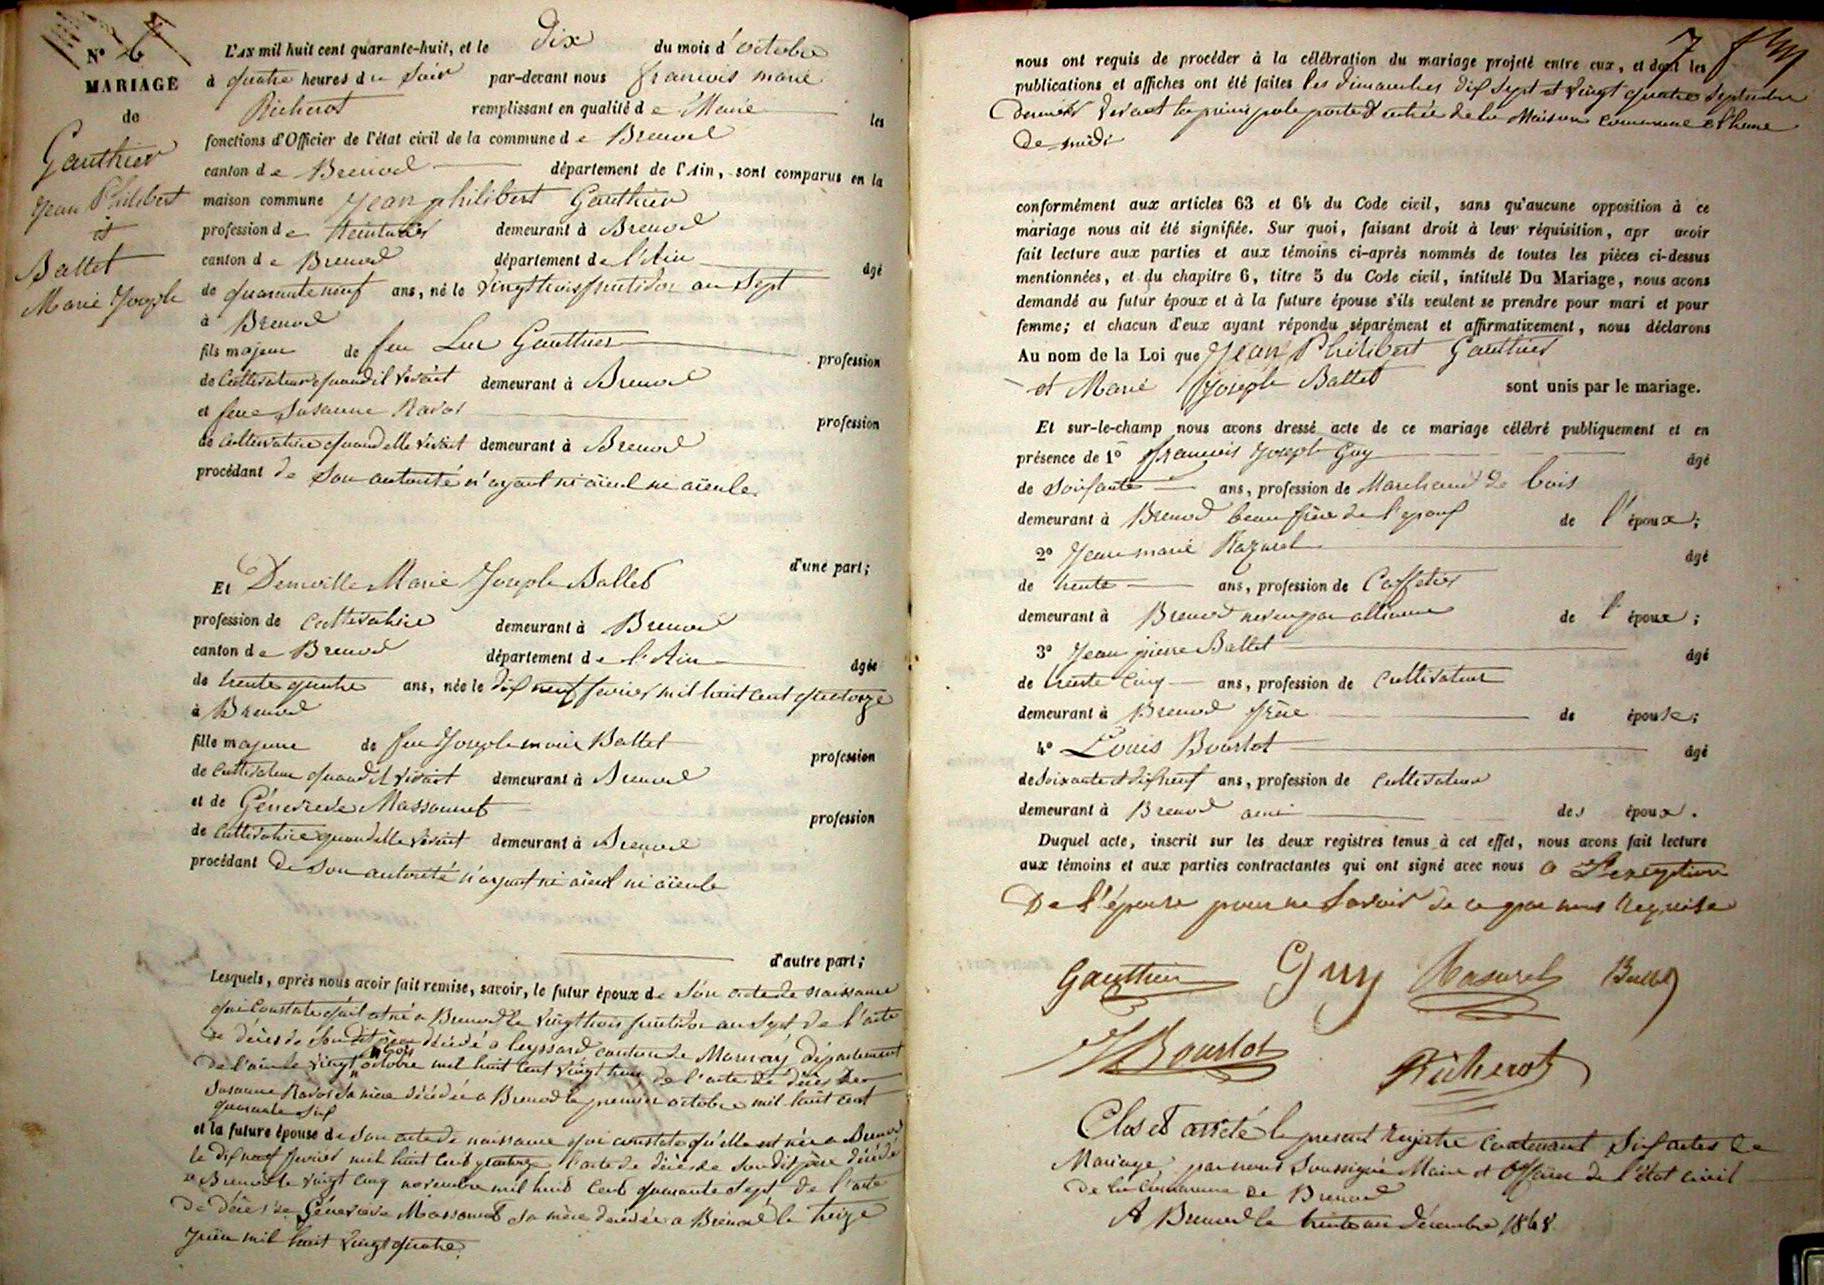 N° 6
MARIAGE
de
Gauthier
Jean Philibert
et
Ballet
Marie Joseph
L'AN mil huit cent quarante-huit, et le dix du mois d'octobre
à quatre heures du Soir par-devant nous françois marie
Richerot remplissant en qualité de Maire les
fonctions d'Officier de l'état civil de la commune de Brenod
canton de Brenod département de l'Ain, sont comparus en la
maison commune Jean philibert Gauthier
profession de demeurant à Brenod
canton de Brenod département de l'Ain âgé
de quarante neuf ans, né le vingt trois fructidor an Sept
à Brenod
fils majeur de feu Luc Gauthier profession
de Cultivateur quand il vivait demeurant à Brenod
et feue Susanne Ravos profession
de cultivatrice quand elle vivait demeurant à Brenod
procédant de son autorité n'ayant ni aïeul ni aïeule
d'une part;
Et Demoiselle Marie Joseph Ballet
profession de Cultivatrice demeurant à Brenod
canton de Brenod département de l'Ain âgée
de trente quatre ans, née le dix neuf fevrier mil huit cent quatorze
à Brenod
fille majeure de feu Joseph marie Ballet profession
de Cultivateur quand il vivait demeurant à Brenod
et de Génevieve Massonnet profession
de Cultivatrice quand elle vivait demeurant à Brenod
procédant de son autorité n'ayant ni aïeul ni aïeule
d'autre part;
Lesquels, après nous avoir fait remise, savoir, le futur époux de Son acte de naissance
qui constate qu'il est né a Brenod le vingt trois fructidor an Sept de l'acte
de décès de Son dit père décédé a leyssard canton de département
de l'ain le vingt trois octobre mil huit cent vingt trois de l'acte de décès de
Susanne Ravos Sa mère décédée a Brenod le premier octobre mil huit cent
quarante six
et la future épouse de Son acte de naissance qui constate qu'elle est née a Brenod
le dix neuf fevrier mil huit cent quatorze l'acte de décès de Son dit père décédé
a Brenod le vingt cinq novembre mil huit cent quarante sept de l'acte
de décès de Génevieve Massonnet sa mère décédée a Brenod le treize
Juin mil huit vingt quatre.
7
nous ont requis de procéder à la célébration du mariage projeté entre eux, et dont les
publications et affiches ont été faites les dimanches dix Sept et vingt quatre Septembre
dernier devant la principale porte d'entrée de la Maison Commune a l'heure
de midi
conformément aux articles 63 et 64 du Code civil, sans qu'aucune opposition à ce
mariage nous ait été signifiée. Sur quoi, faisant droit à leur réquisition, apr avoir
fait lecture aux parties et aux témoins ci-après nommés de toutes les pièces ci-dessus
mentionnées, et du chapitre 6, titre 5 du Code civil, intitulé Du Mariage, nous avons
demandé au futur époux et à la future épouse s'ils veulent se prendre pour mari et pour
femme; et chacun d'eux ayant répondu séparément et affirmativement, nous déclarons
Au nom de la Loi que Jean Philibert Gauthier
et Marie Joseph Ballet sont unis par le mariage.
Et sur-le-champ nous avons dressé acte de ce mariage célébré publiquement et en
présence de 1° françois Joseph Guy âgé
de Soixante ans, profession de Marchand de bois
demeurant à Brenod beau frère de l'epoux de l'époux;
2° Jean marie Razurel âgé
de trente ans, profession de Caffetier
demeurant à Brenod neveu par alliance de l'époux;
3° Jean pierre Ballet âgé
de trente cinq ans, profession de Cultivateur
demeurant à Brenod frère de épouse;
4° Louis Bourlot âgé
de Soixante et dix neuf ans, profession de cultivateur
demeurant à Brenod ami des époux.
Duquel acte, inscrit sur les deux registres tenus à cet effet, nous avons fait lecture
aux témoins et aux parties contractantes qui ont signé avec nous a L'exception
De l'épouse pour ne Savoir de ce par nous requise
Gauthier Guy Rasurel Ballet
Bourlot Richerot
Clos et arrêté le present registre contenant Six actes de
Mariage, par nous Soussigné Maire et Officier de l'état civil
de la Commune de Brenod
A Brenod le trente un décembre 1848